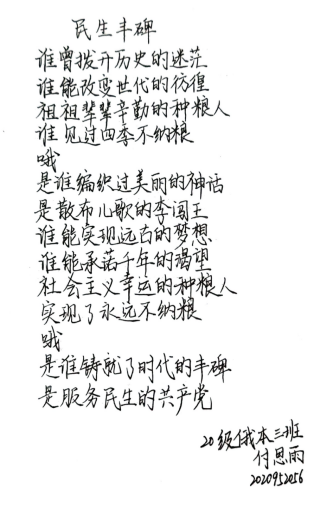 民生丰碑
谁曾拨开历史的迷茫
谁能改变世代的彷徨
祖祖辈辈辛勤的种粮人
谁见过四季不纳粮
哦
是谁编织过美丽的神话
是散布儿歌的李闯王
谁能实现远古的梦想
谁能承诺千年的渴望
社会主义幸运的种粮人
实现了永远不纳粮
哦
是谁铸就了时代的丰碑
是服务民生的共产党
20级俄本三班
付思雨
2020952056